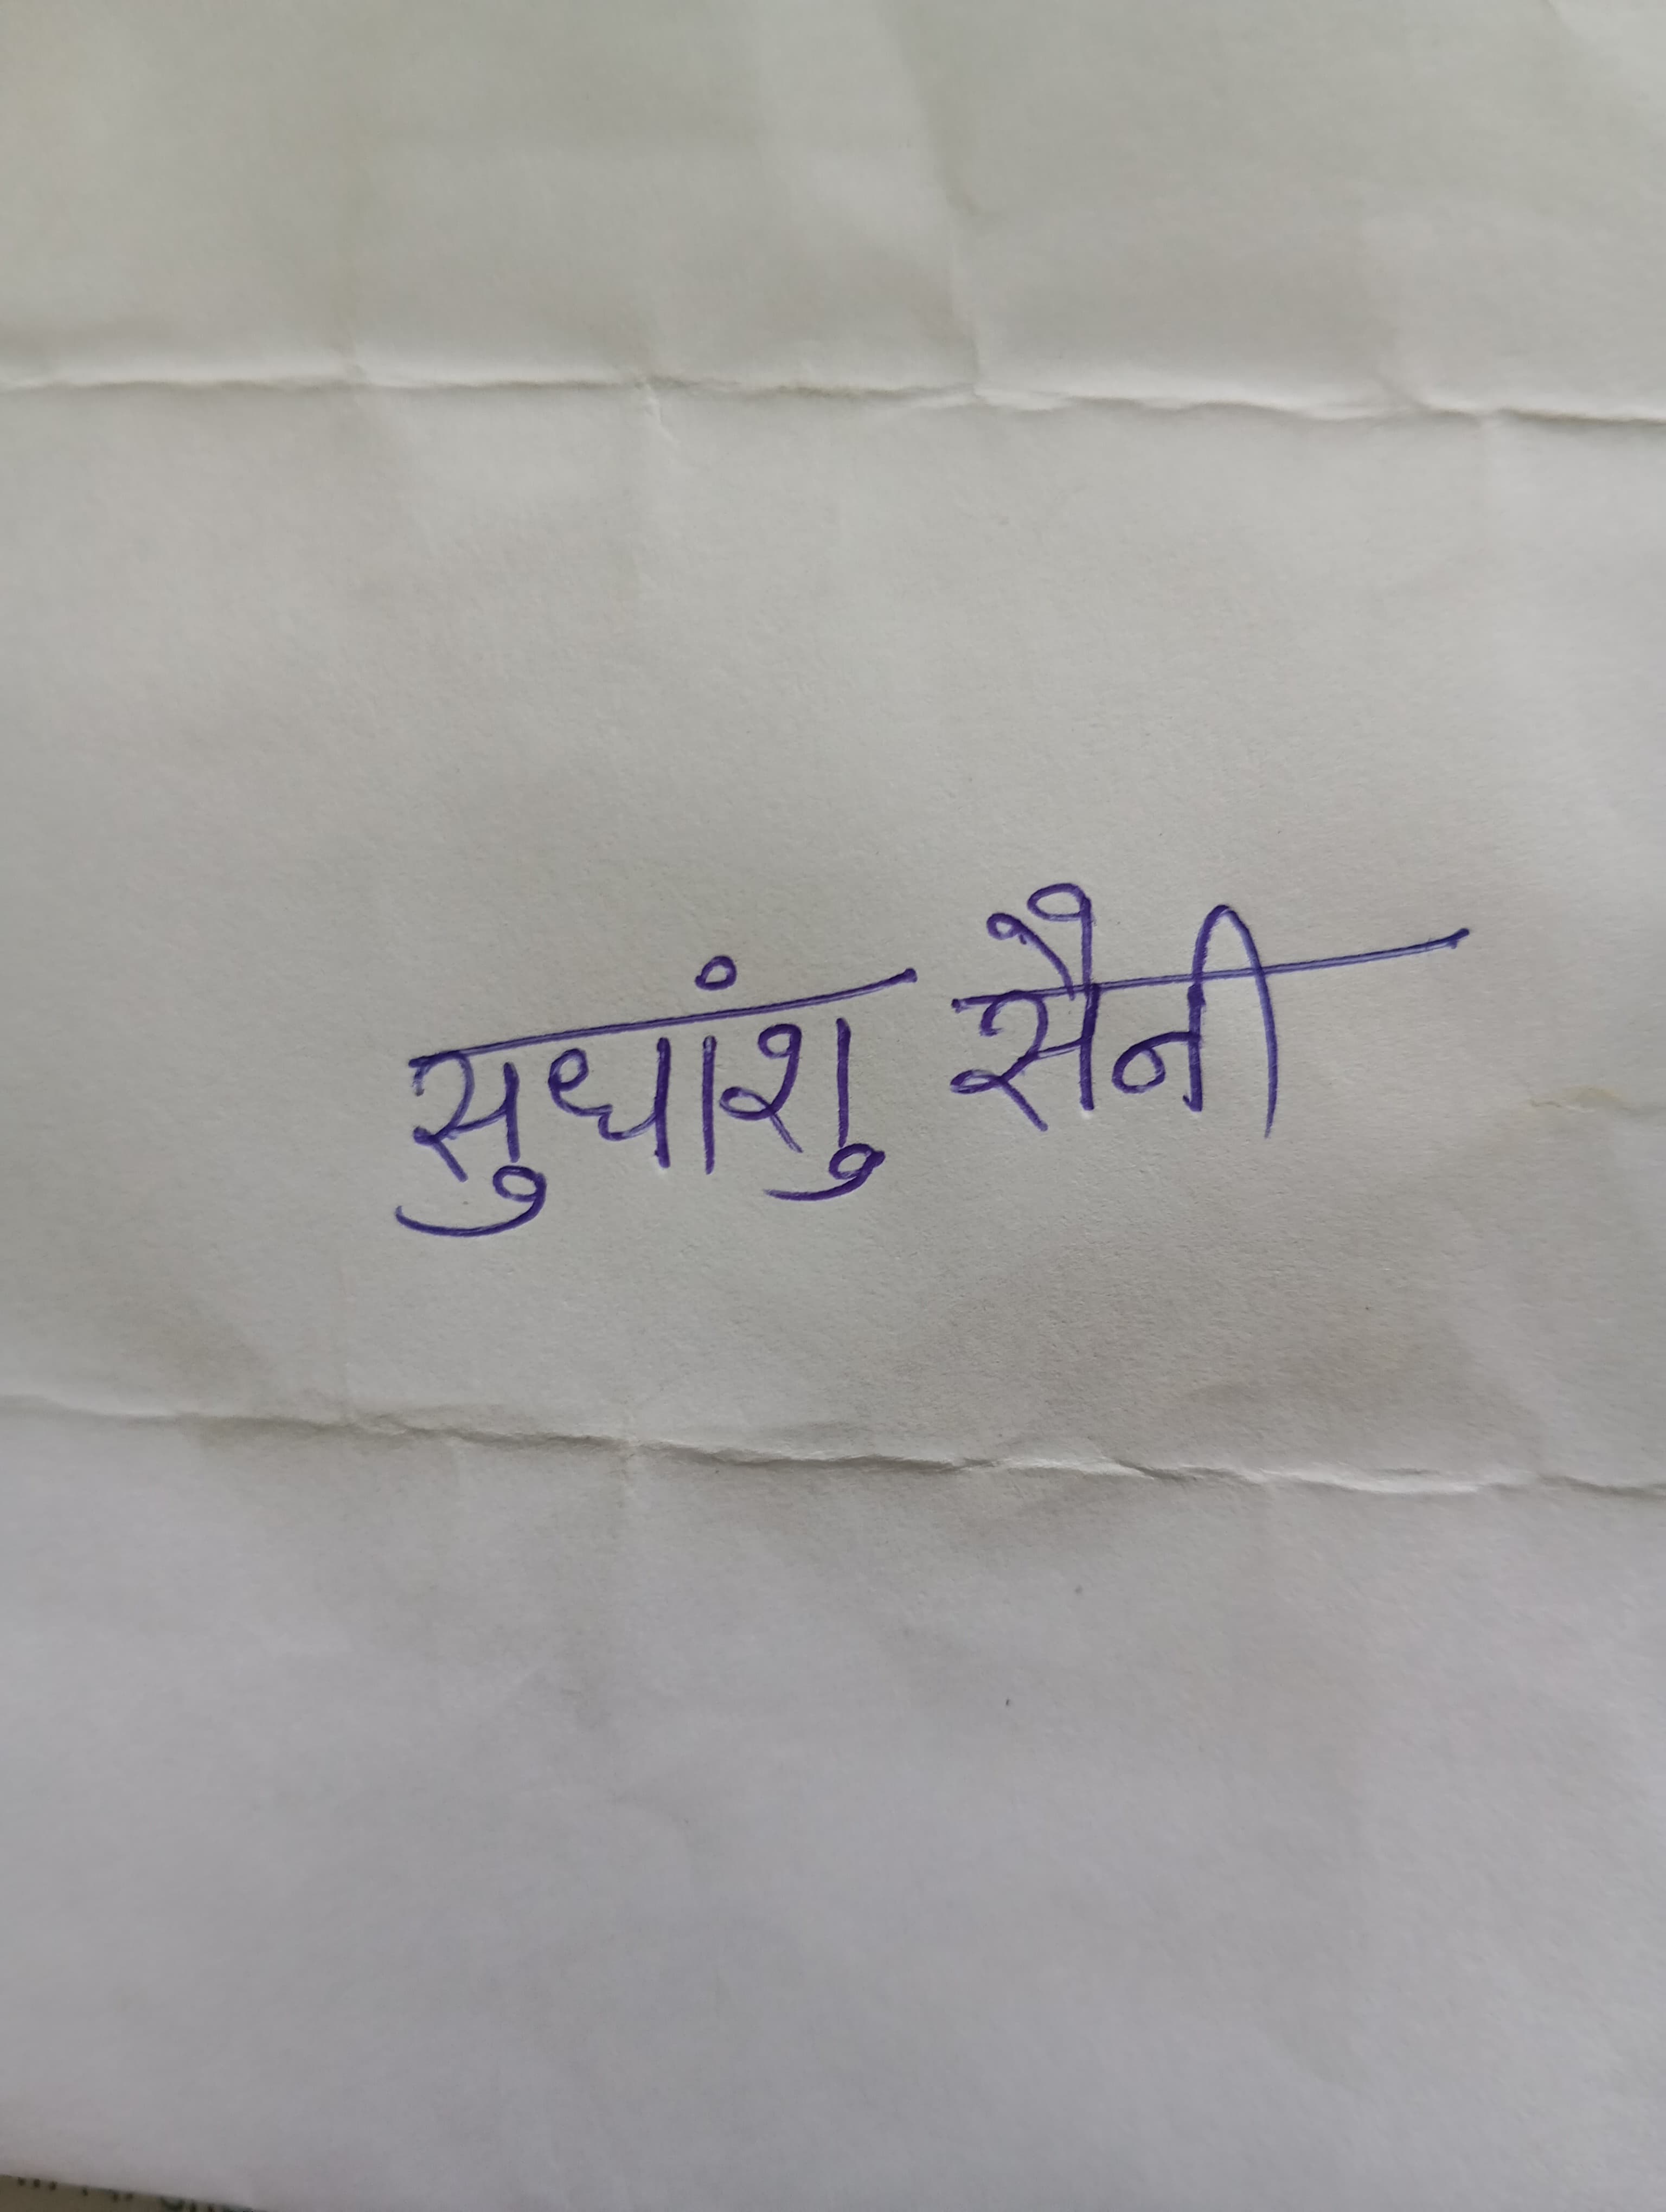 सुधांशु सैनी